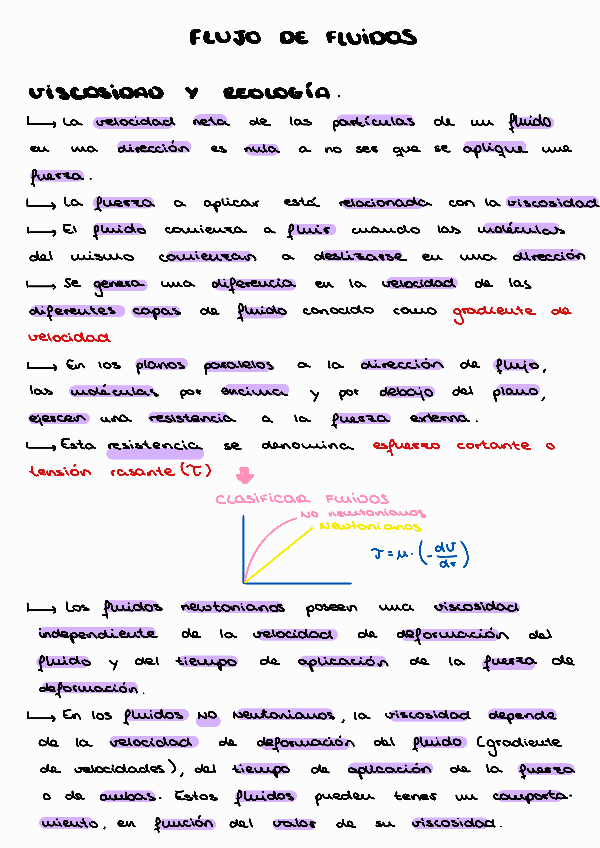 FLUJO DE FLUIDOS
VISCOSIDAD Y REOLOGÍA.
↳ La velocidad neta de las partículas de un fluido
en una dirección es nula a no ser que se aplique una
fuerza.
↳ La fuerza a aplicar está relacionada con la viscosidad
↳ El fluido comienza a fluir cuando las moléculas
del mismo comienzan a deslizarse en una dirección
↳ Se genera una diferencia en la velocidad de las
diferentes capas de fluido conocido como gradiente de
velocidad
↳ En los planos paralelos a la dirección de flujo,
las moléculas por encima y por debajo del plano,
ejercen una resistencia a la fuerza externa.
↳ Esta resistencia se denomina esfuerzo cortante o
tensión rasante (τ)
CLASIFICAR FLUIDOS
NO newtonianos
Newtonianos
τ = μ · (- dV/dr)
↳ Los fluidos newtonianos poseen una viscosidad
independiente de la velocidad de deformación del
fluido y del tiempo de aplicación de la fuerza de
deformación.
↳ En los fluidos NO Newtonianos, la viscosidad depende
de la velocidad de deformación del fluido (gradiente
de velocidades), del tiempo de aplicación de la fuerza
o de ambas. Estos fluidos pueden tener un comporta-
miento, en función del valor de su viscosidad.